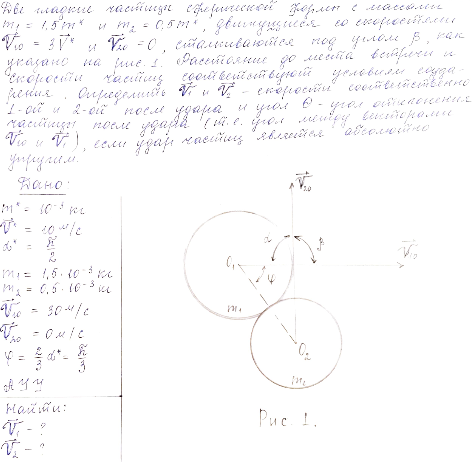 Две гладкие частицы сферической формы с массами
m₁ = 1,5m* и m₂ = 0,5m*, движущиеся со скоростями
V₁₀ = 3V* и V₂₀ = 0, сталкиваются под углом β, как
указано на рис. 1. Расстояние до места встречи и
скорости частиц соответствуют условиям соуда-
рения. Определить V₁ и V₂ - скорости соответственно
1-ой и 2-ой после удара и угол θ - угол отклонения
частицы после удара (т.е. угол между векторами
V₁₀ и V₁), если удар частиц является абсолютно
упругим.
Дано:
m* = 10⁻³ кг
V* = 10 м/с
α* = π/2
m₁ = 1,5·10⁻³ кг
m₂ = 0,5·10⁻³ кг
V₁₀ = 30 м/с
V₂₀ = 0 м/с
φ = 2/3 α* = π/3
АУУ
Найти:
V₁ - ?
V₂ - ?
V₂₀
α
β
V₁₀
O₁
φ
m₁
O₂
m₂
Рис. 1.